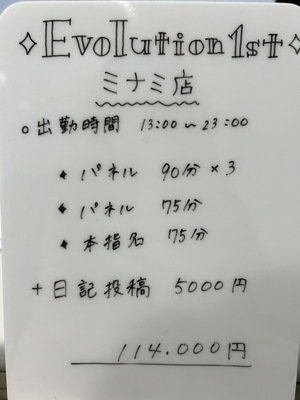 ✧Evolution1st✧
ミナミ店
○出勤時間 13:00~23:00
◆ パネル 90分×3
◆ パネル 75分
◆ 本指名 75分
+日記投稿 5000円
114.000円